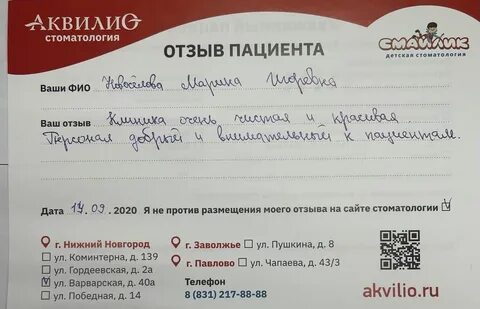 АКВИЛИО
СТОМАТОЛОГИЯ
СМАЙЛИК
ДЕТСКАЯ СТОМАТОЛОГИЯ
ОТЗЫВ ПАЦИЕНТА
Ваши ФИО Новосёлова Марина Игоревна
Ваш отзыв Клиника очень чистая и красивая
Персонал добрый и внимательный к пациентам.
Дата 17.09.2020 Я не против размещения моего отзыва на сайте стоматологии
г. Нижний Новгород
ул. Коминтерна, д. 139
ул. Гордеевская, д. 2а
ул. Варварская, д. 40а
ул. Победная, д. 14
г. Заволжье ул. Пушкина, д. 8
г. Павлово ул. Чапаева, д. 43/3
Телефон
8 (831) 217-88-88
akvilio.ru